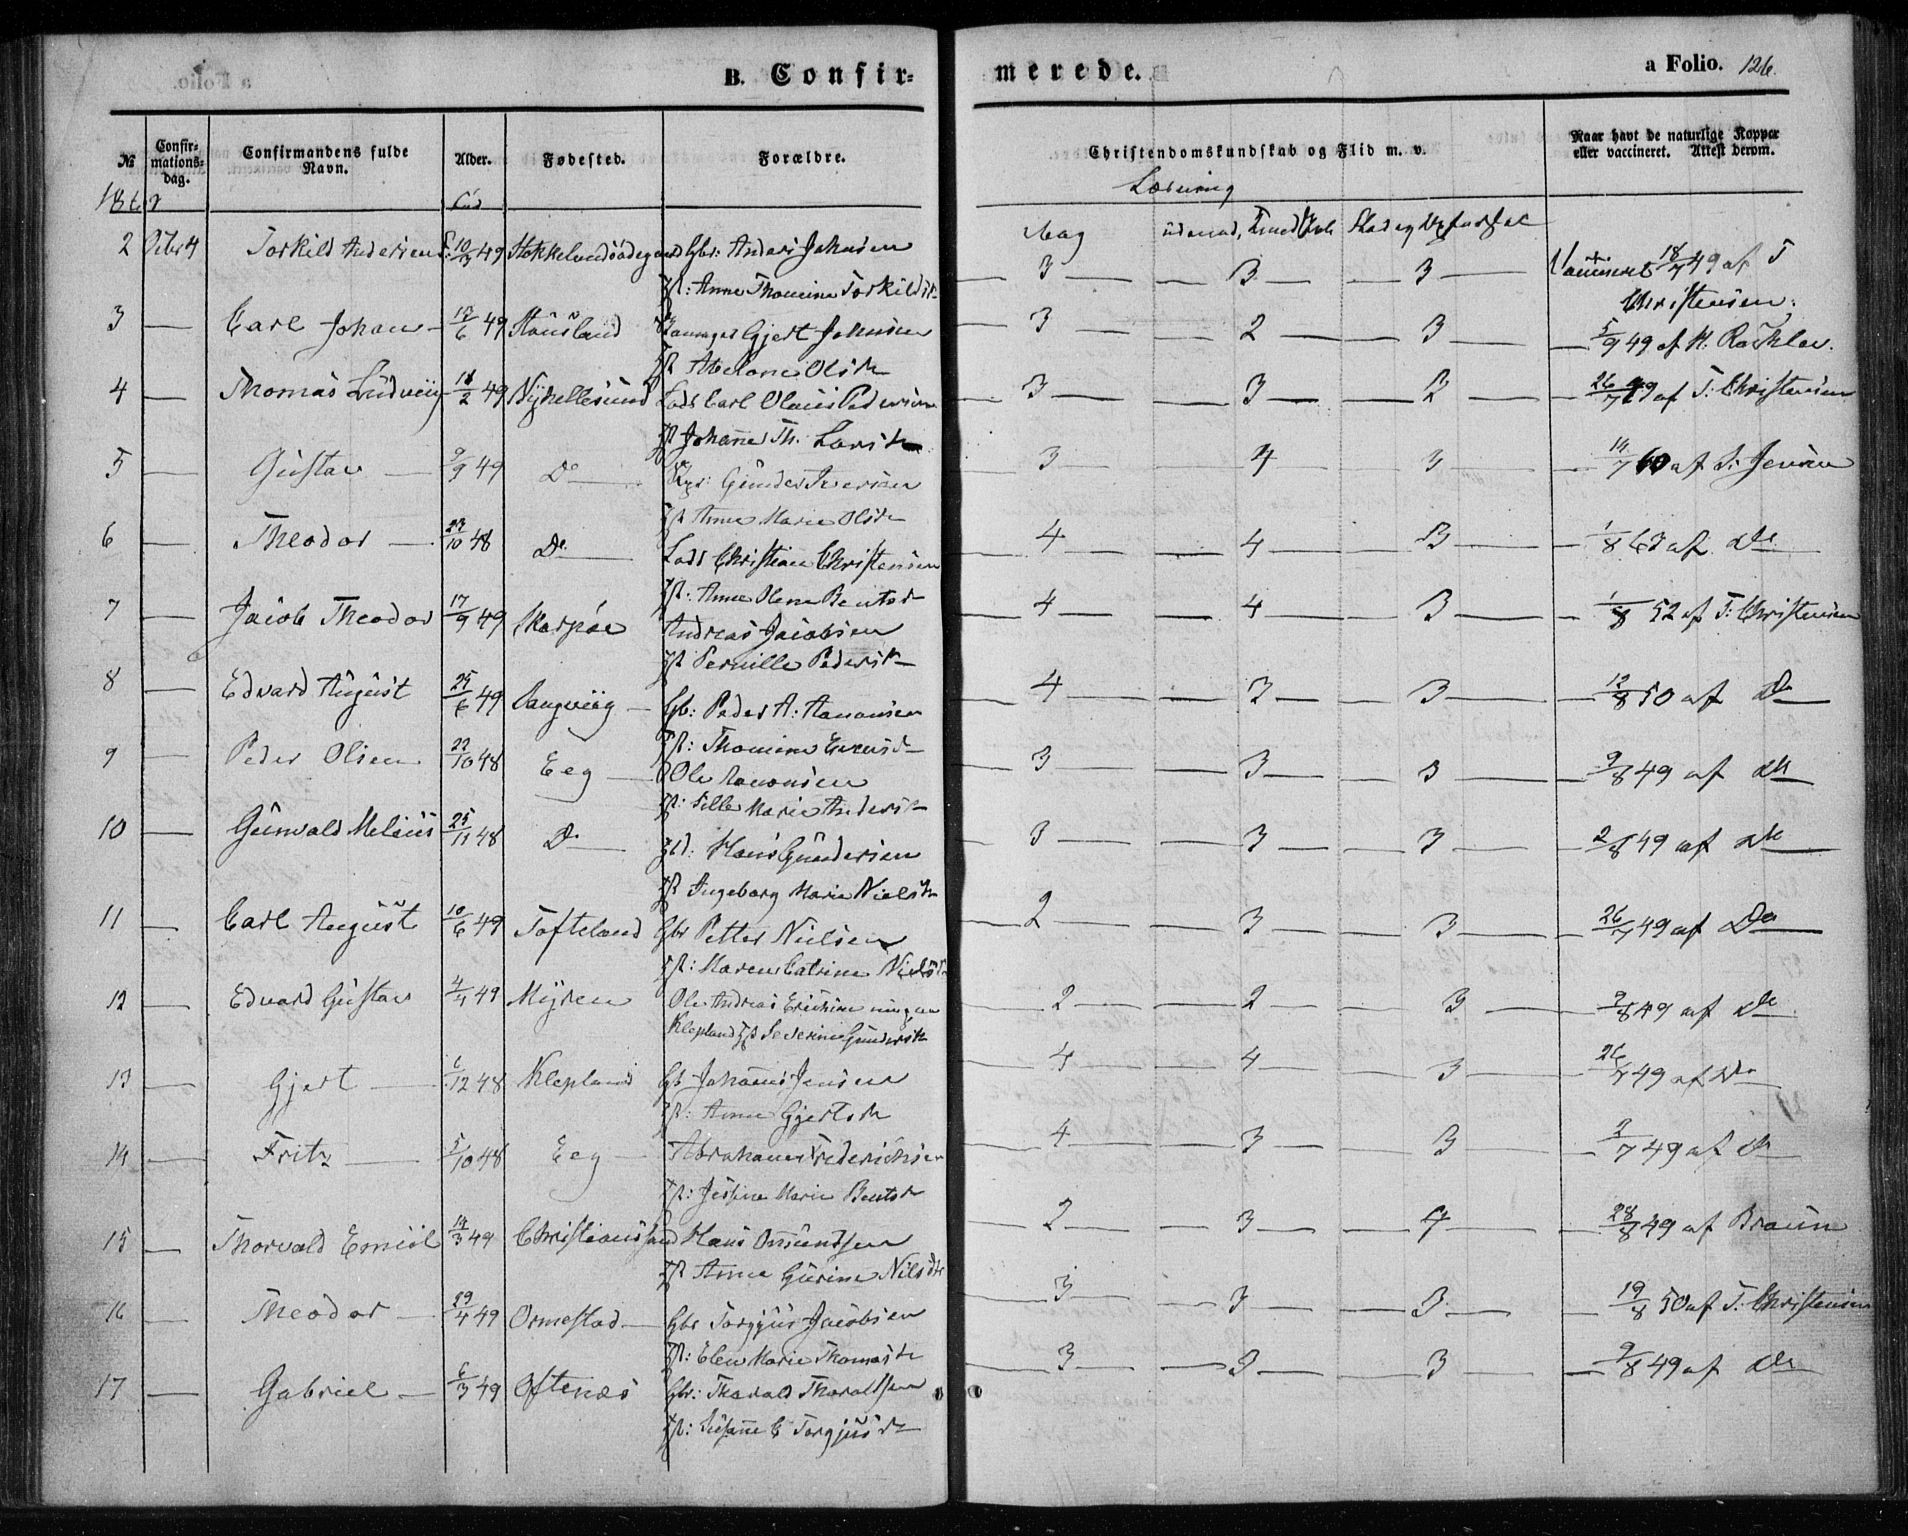 B. Confir-
merede.
a Folio. 126.
№
Confir-
mations-
dag.
Confirmandens fulde
Navn.
Alder.
Fødested.
Forældre.
Christendomskundskab og Flid m. v.
Naar havt de naturlige Kopper
eller vaccineret. Attest derom.
2 Torkild Andersen 10/3 49 Gbr: Anders Johnsen 3 3 3 18/7 49 af T
Anne Thomine Torkildsd Christensen.
3 Carl Johan 49 Stausland Gjert Johnsen 3 2 3 5/9 49 af H.
Abelone Olsd
4 Thomas Ludvig 49 Nyhellesund Lods Carl Olaus Pedersen 3 3 2 26/7 49 af T: Christensen
Johanne Th. Larsd
5 Gustav 9/9 49 Do Gunder Iversen 3 4 3 14/7 60 af S: Jensen
Anne Marie Olsd
6 Theodor 23/10 48 Do Lods Christian Christensen 4 4 3 1/8 63 af Do
Anne Olene Bentsd
7 Jacob Theodor 17/9 49 Skarpøe Andreas Jacobsen 4 4 3 1/8 52 af T: Christensen
Pernille Pedersd
8 Edvard August 25/6 49 Langveig Gb: Peder A: Aanonsen 4 3 3 12/8 50 af Do
Thomine
9 Peder Olsen 22/10 48 Eeg Ole Aanonsen 3 3 3 9/8 49 af do
Sille Marie Andersd
10 Gunvald Melaus 25/11 48 Do Hans Gundersen 3 3 3 2/8 49 af do
Ingeborg Marie Nielsd
11 Carl August 10/6 49 Tofteland Gbr Petter Nielsen 2 3 3 26/7 49 af Do
Maren Catrine Nielsd
12 Edvard Gustav 4/4 49 Myren Ole Andreas 2 2 3 9/8 49 af do
Klepland Severine Gundersd
13 Gjert 6/12 48 Klepland Gb Johannes Jensen 4 4 3 26/7 49 af do
Anne Gjertsd
14 Fritz 5/10 48 Eeg Abraham Frederichsen 4 3 3 2/7 49 af do
Marie Bentsd
15 Thorvald Emiel 14/3 49 Christianssand Hans Omundsen 2 3 4 28/8 49 af Braun
Anne Gurine Nilsd
16 Theodor 29/4 49 Ormestad Gbr Torgjus Jacobsen 3 3 3 19/8 50 af T: Christensen
Elen Marie Thomasd
17 Gabriel 6/3 49 Oftenæs Gbr: Tharald Tharaldsen 3 3 3 9/8 49 af do
Susanne C Torgjusd